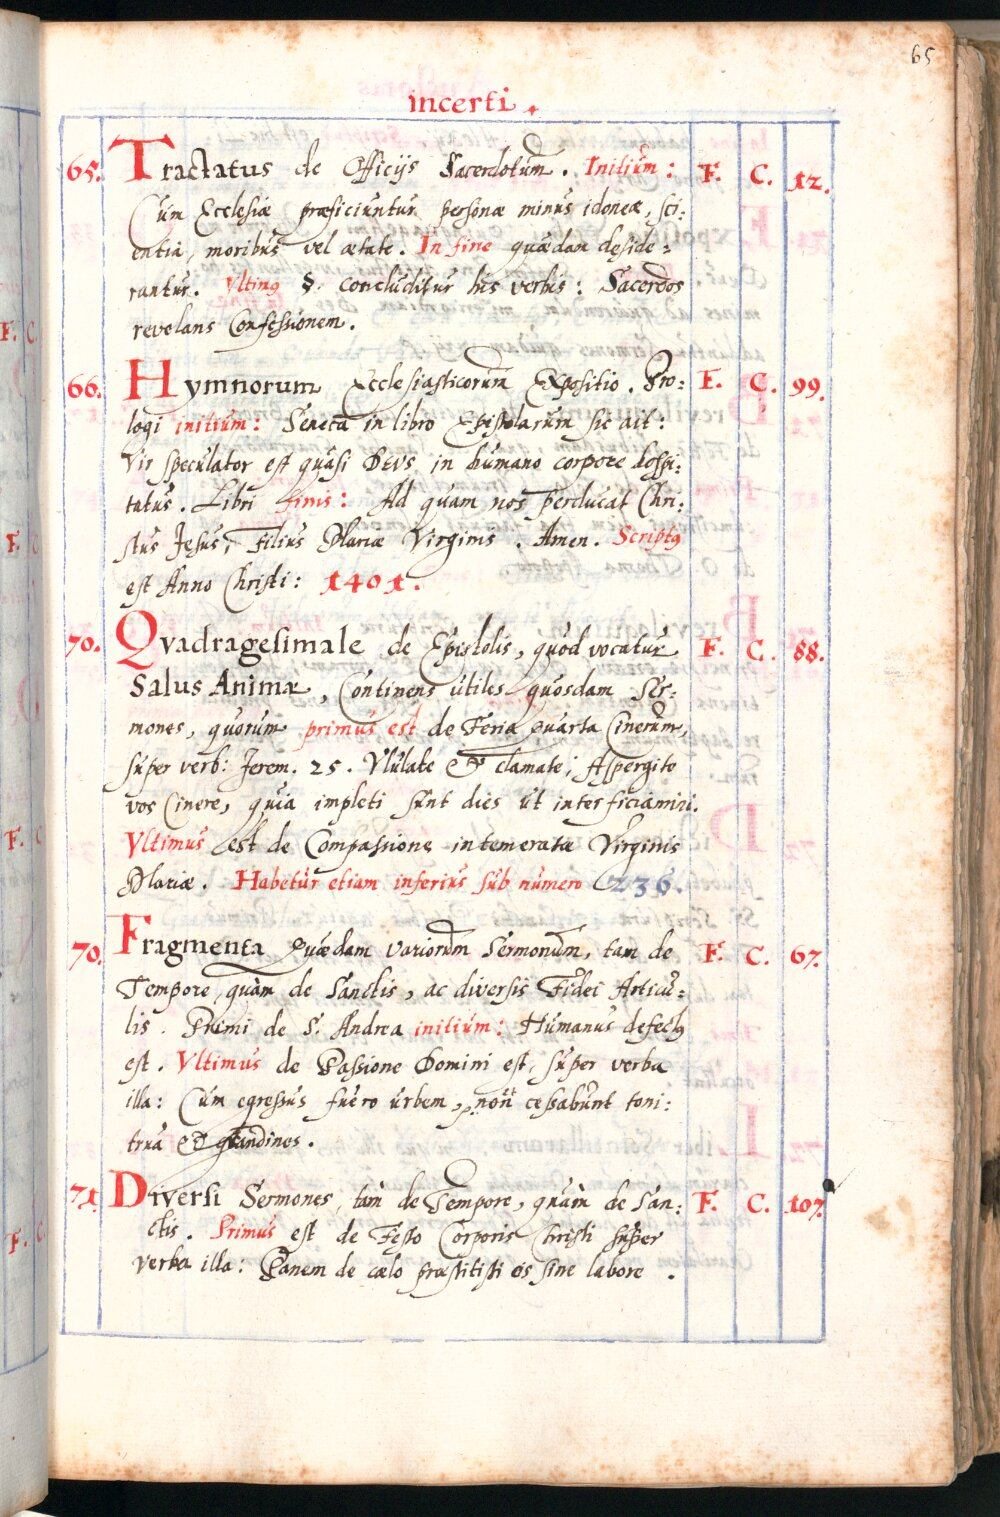 65
incerti.
65. Tractatus de Officijs Sacerdotum. Initium: F. C. 12.
Cum Ecclesiæ præficiuntur personæ minus idoneæ, sci:
entia, moribus vel ætate. In fine quædam deside:
rantur. Vltimꝰ §. concluditur his verbis: Sacerdos
revelans Confessionem.
66. Hymnorum Ecclesiasticorum Expositio. Pro: F. C. 99.
logi initium: Seneca in libro Epistolarum sic ait:
Vir speculator est quasi DEVS in humano corpore hospi:
tatus. Libri finis: Ad quam nos perducat Chri:
stus Jesus, Filius Mariæ Virginis. Amen. Scriptꝰ
est Anno Christi: 1401.
70. Qvadragesimale de Epistolis, quod vocatur F. C. 88.
Salus Animæ, Continens utiles quosdam Ser:
mones, quorum primus est de Feria quarta Cinerum,
super verb: Jerem. 25. Vlulate & clamate; Aspergite
vos Cinere, quia impleti sunt dies ut interficiamini.
Vltimus est de Compassione intemeratæ Virginis
Mariæ. Habetur etiam inferius sub numero 236.
70. Fragmenta quædam variorum Sermonum, tam de F. C. 67.
Tempore, quàm de Sanctis, ac diversis Fidei Articu:
lis. Primi de S. Andrea initium: Humanus defectꝰ
est. Vltimus de Passione Domini est, super verba
illa: Cum egressus fuero urbem, cessabunt toni:
trua & grandines.
71. Diversi Sermones, tàm de Tempore, quàm de San: F. C. 107.
ctis. Primus est de Festo Corporis Christi super
verba illa: Panem de cælo præstitisti eis sine labore.